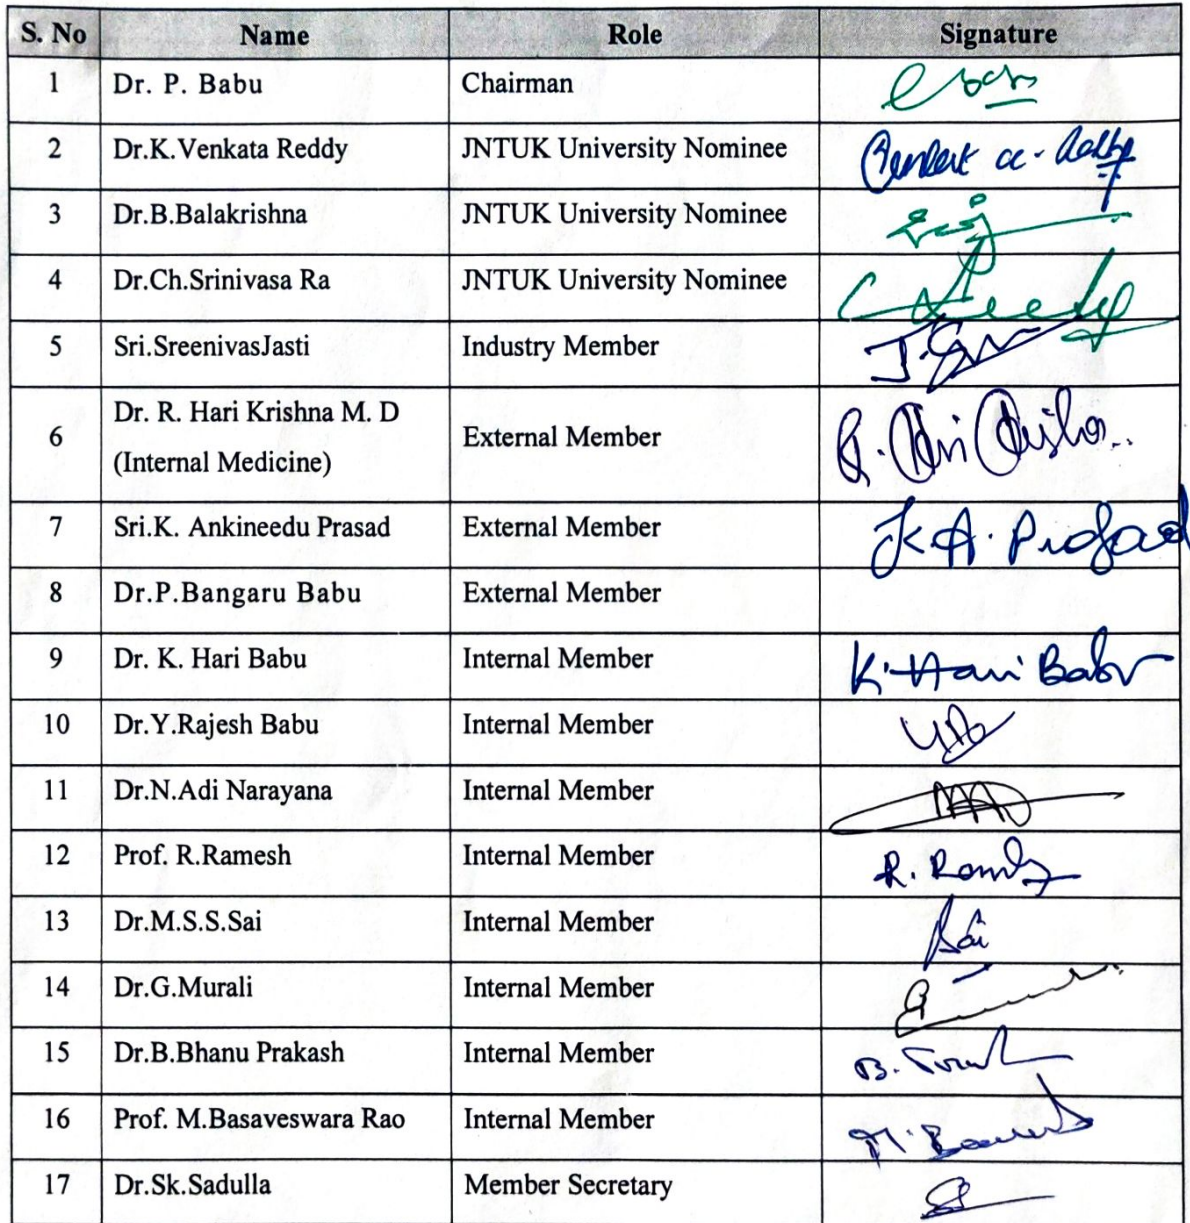 S. No Name Role Signature
1 Dr. P. Babu Chairman
2 Dr.K.Venkata Reddy JNTUK University Nominee
3 Dr.B.Balakrishna JNTUK University Nominee
4 Dr.Ch.Srinivasa Ra JNTUK University Nominee
5 Sri.SreenivasJasti Industry Member
Dr. R. Hari Krishna M. D
6 External Member R. Hari Krishna
(Internal Medicine)
7 Sri.K. Ankineedu Prasad External Member K.A. Prasad
8 Dr.P.Bangaru Babu External Member
9 Dr. K. Hari Babu Internal Member K. Hari Babu
10 Dr.Y.Rajesh Babu Internal Member
11 Dr.N.Adi Narayana Internal Member
12 Prof. R.Ramesh Internal Member
13 Dr.M.S.S.Sai Internal Member Sai
14 Dr.G.Murali Internal Member
15 Dr.B.Bhanu Prakash Internal Member
16 Prof. M.Basaveswara Rao Internal Member
17 Dr.Sk.Sadulla Member Secretary